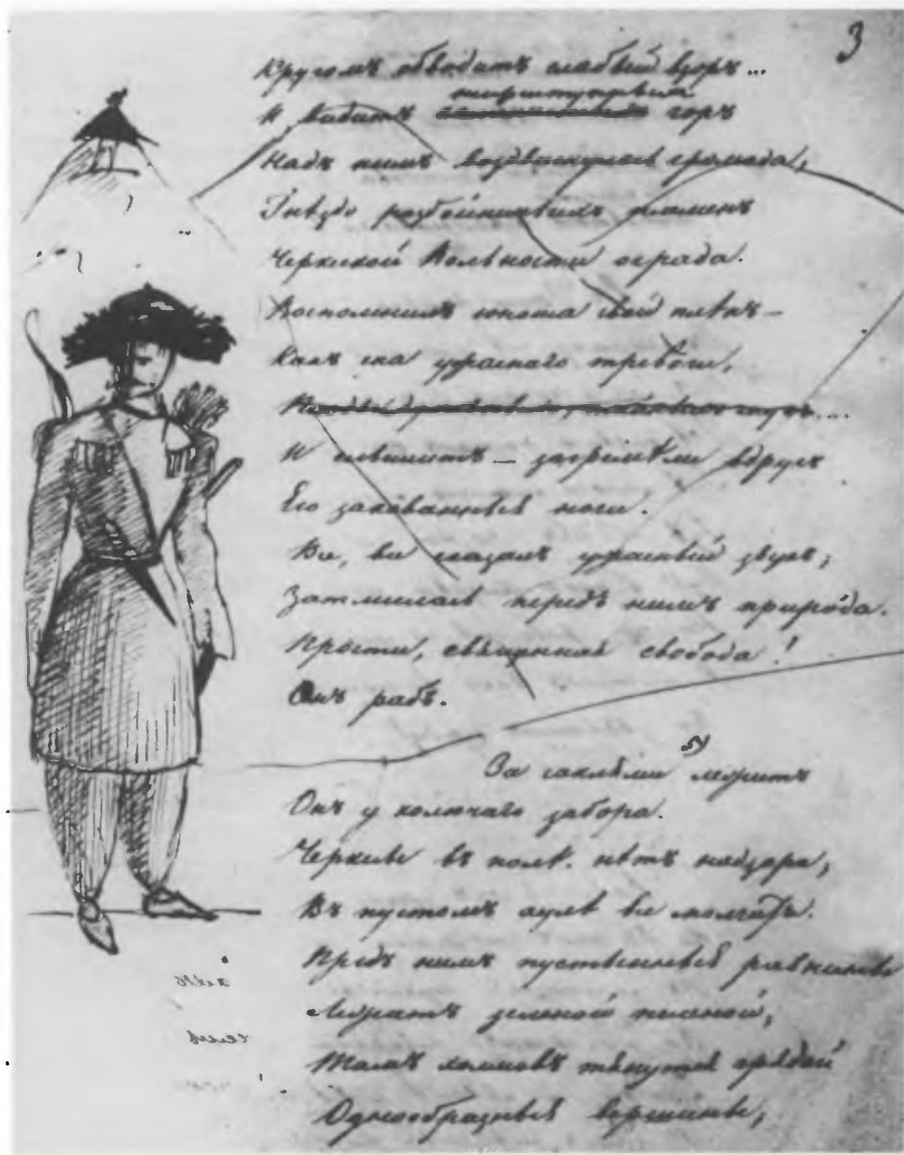 3
Кругомъ обводитъ слабый взоръ...
неприступныхъ
И видитъ горъ
Надъ нимъ воздвигнулась громада,
Гнѣздо разбойничьихъ племенъ
Черкеской Вольности ограда.
Воспомнилъ юноша свой плѣнъ —
Какъ сна ужаснаго тревоги,
И слышитъ — загремѣли вдругъ
Его закованныя ноги.
Все, все сказалъ ужасный звукъ;
Затмилась передъ нимъ природа.
Прости, священная свобода!
Онъ рабъ.
За саклями лежитъ
Онъ у колючаго забора.
Черкесы въ полѣ. нѣтъ надзора,
Въ пустомъ аулѣ все молчитъ.
Предъ нимъ пустынныя равнины
Лежатъ зеленой пеленой,
Тамъ холмовъ тянутся грядой
Однообразныя вершины;